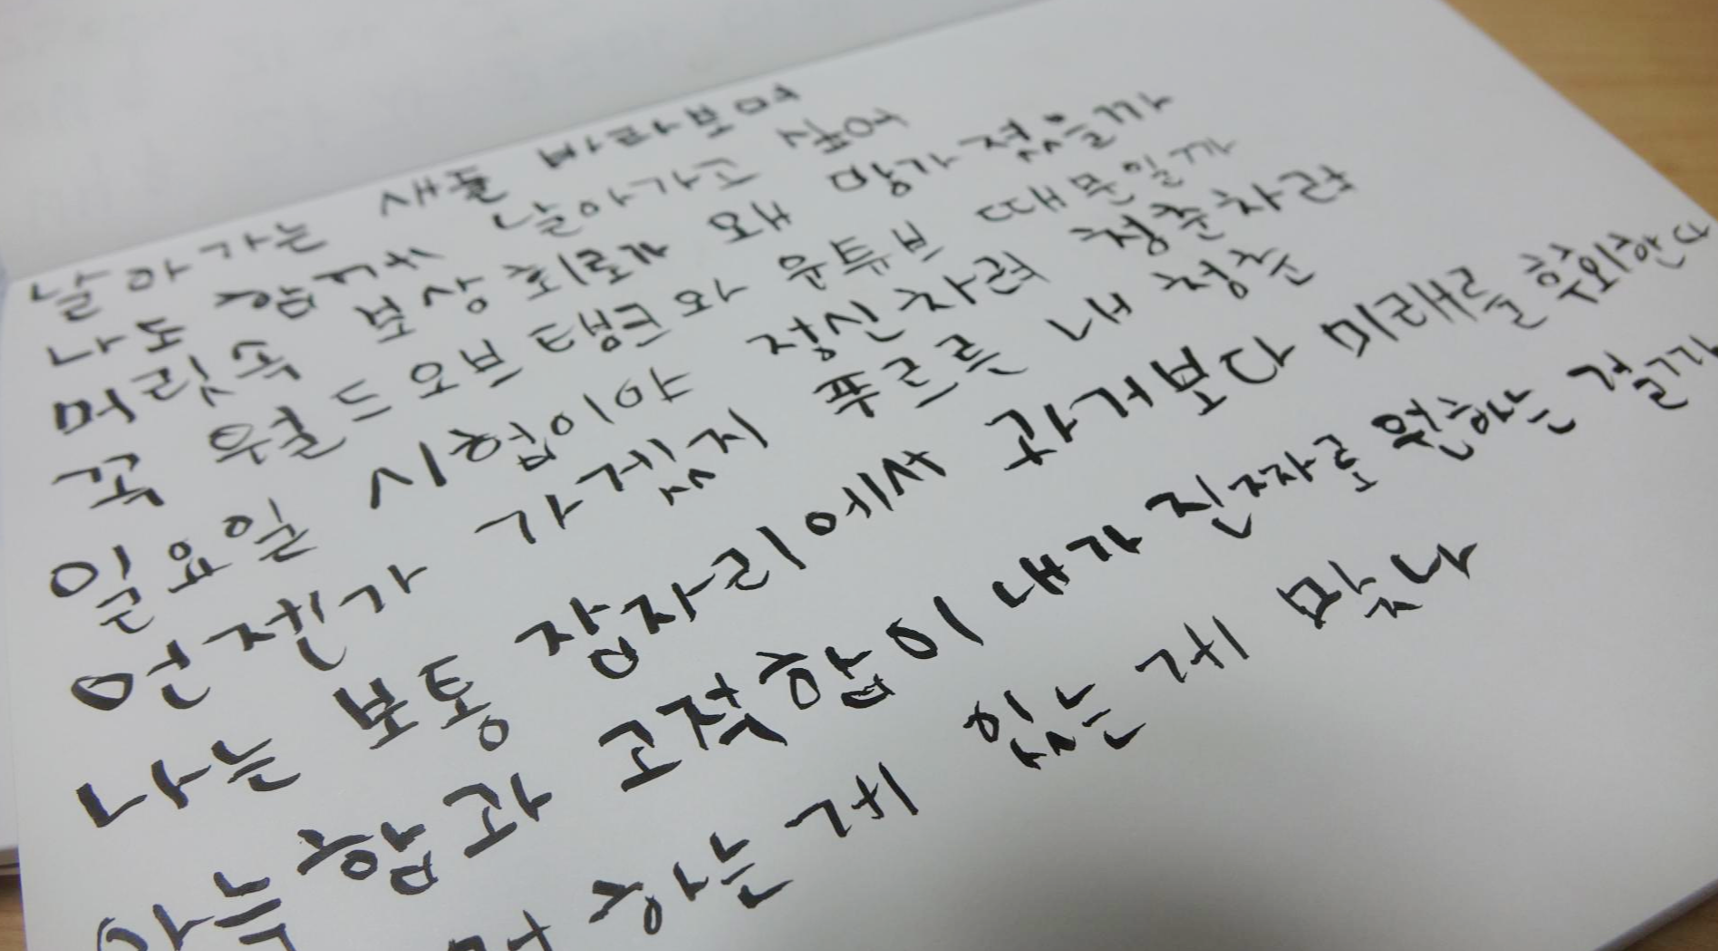 날아가는 새를 바라보며
나도 함께 날아가고 싶어
머릿속 보상회로가 왜 망가졌을까
꼭 월드오브탱크와 유튜브 때문일까
일요일 시험이야 정신차려 청춘차려
언젠가 가겠지 푸르른 내 청춘
나는 보통 잠자리에서 과거보다 미래를 후회한다
아늑함과 고적함이 내가 진짜로 원하는 걸까
하는게 있는게 맞나